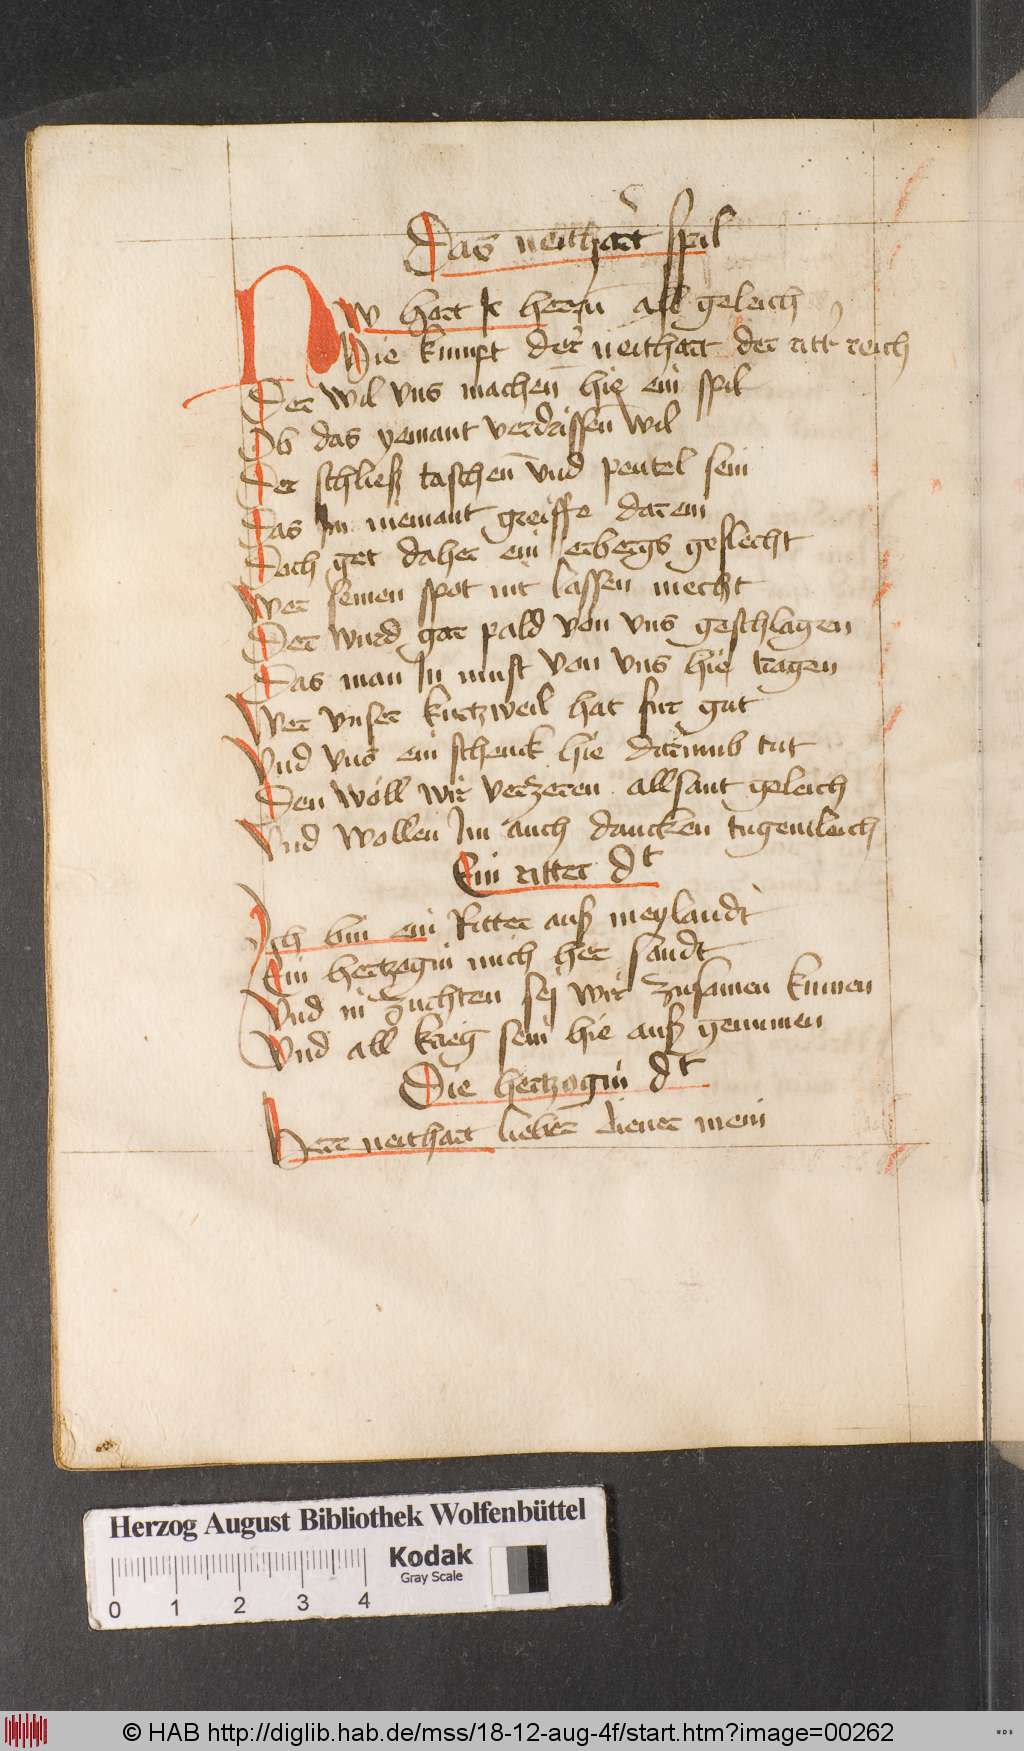 Das neithart spil
Nw hort Ir herrn all geleich
Hie kumpt der neithart der ritter reich
Der wil vns machen hie ein spil
Ob das yemant verdrissen wil
Der schließ taschen vnd peutel sein
Das Im niemant greiffe darein
Doch get daher ein erbergs geslecht
Wer seinen spot nit lassen mecht
Der wurd gar pald von vns geschlagen
Das man In must von vns hie tragen
Wer vnser kurtzweil hat fur gut
Vnd vns ein schenck hie darumb tut
Den wöll wir verzeren allsant geleich
Vnd wollen Im auch dancken tugentleich
Ein ritter dt
Ich bin ein Ritter auß meylandt
Ein hertzogin mich her sandt
Vnd in zuchten sej wir zusamen kumen
Vnd all krieg sein hie auß genumen
Die hertzogin dt
Herr neithart lieber diener mein
Herzog August Bibliothek Wolfenbüttel
Kodak
Gray Scale
0 1 2 3 4
© HAB http://diglib.hab.de/mss/18-12-aug-4f/start.htm?image=00262